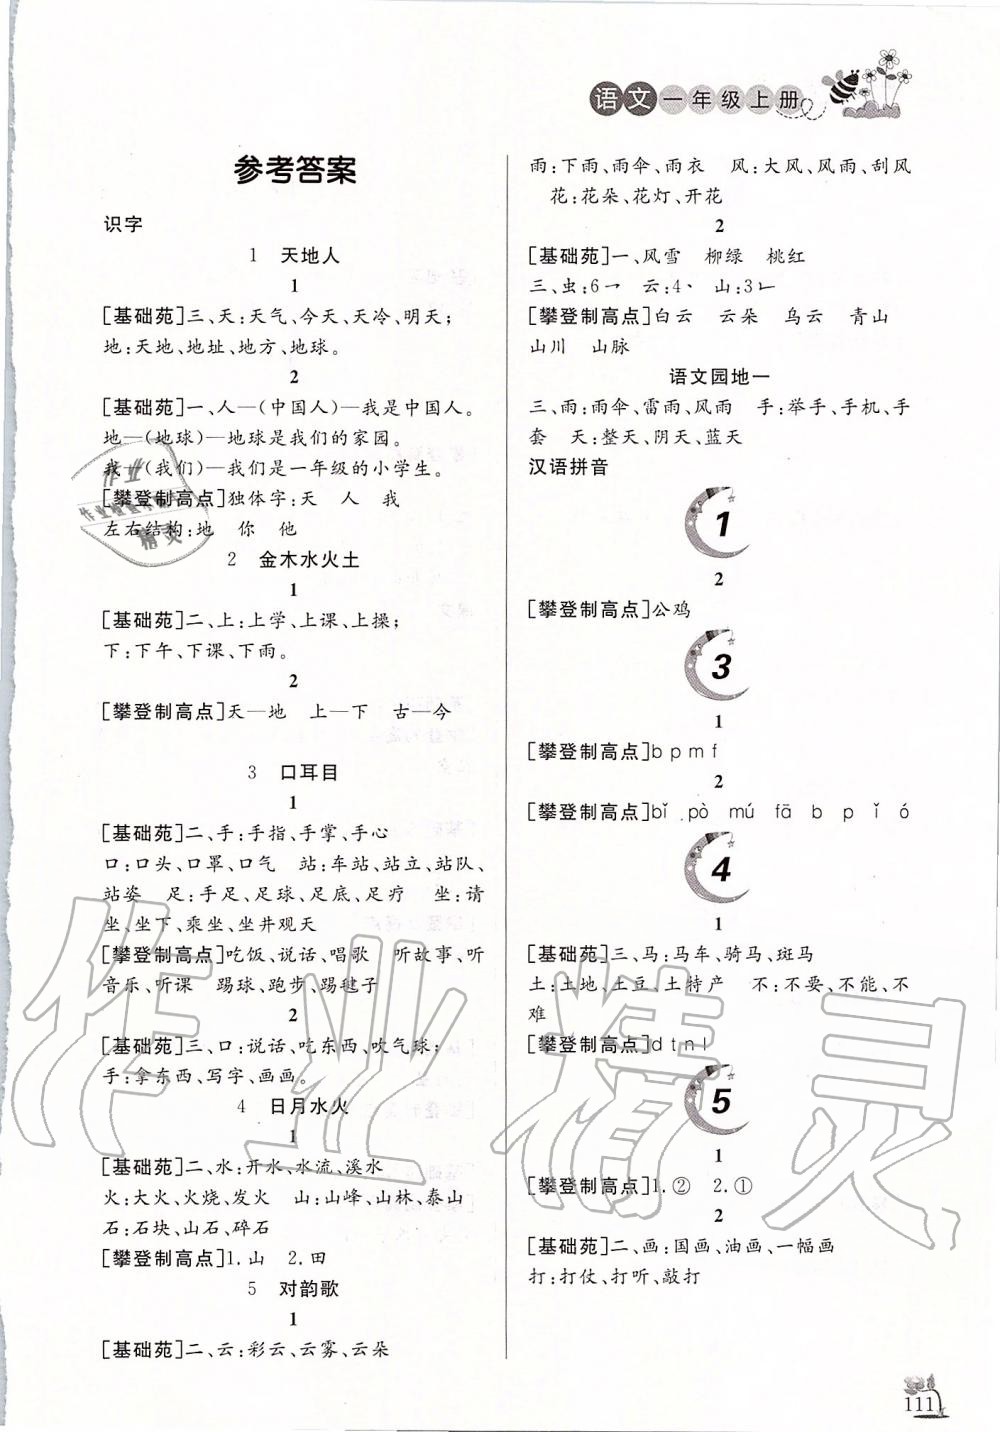 语文一年级上册
参考答案
识字
1 天地人
1
[基础苑]三、天:天气、今天、天冷、明天;
地:天地、地址、地方、地球。
2
[基础苑]一、人—(中国人)—我是中国人。
地—(地球)—地球是我们的家园。
我—(我们)—我们是一年级的小学生。
[攀登制高点]独体字:天 人 我
左右结构:地 你 他
2 金木水火土
1
[基础苑]二、上:上学、上课、上操;
下:下午、下课、下雨。
2
[攀登制高点]天—地 上—下 古—今
3 口耳目
1
[基础苑]二、手:手指、手掌、手心
口:口头、口罩、口气 站:车站、站立、站队、
站姿 足:手足、足球、足底、足疗 坐:请
坐、坐下、乘坐、坐井观天
[攀登制高点]吃饭、说话、唱歌 听故事、听
音乐、听课 踢球、跑步、踢毽子
2
[基础苑]三、口:说话、吃东西、吹气球;
手:拿东西、写字、画画。
4 日月水火
1
[基础苑]二、水:开水、水流、溪水
火:大火、火烧、发火 山:山峰、山林、泰山
石:石块、山石、碎石
[攀登制高点]1.山 2.田
5 对韵歌
1
[基础苑]二、云:彩云、云雾、云朵
雨:下雨、雨伞、雨衣 风:大风、风雨、刮风
花:花朵、花灯、开花
2
[基础苑]一、风雪 柳绿 桃红
三、虫:6㇀ 云:4、 山:3㇗
[攀登制高点]白云 云朵 乌云 青山
山川 山脉
语文园地一
三、雨:雨伞、雷雨、风雨 手:举手、手机、手
套 天:整天、阴天、蓝天
汉语拼音
1
2
[攀登制高点]公鸡
3
1
[攀登制高点]b p m f
2
[攀登制高点]bǐ pò mú fā b p ǐ ó
4
1
[基础苑]三、马:马车、骑马、斑马
土:土地、土豆、土特产 不:不要、不能、不
难
[攀登制高点]d t n l
5
1
[攀登制高点]1.② 2.①
2
[基础苑]二、画:国画、油画、一幅画
打:打仗、打听、敲打
111
作业精灵